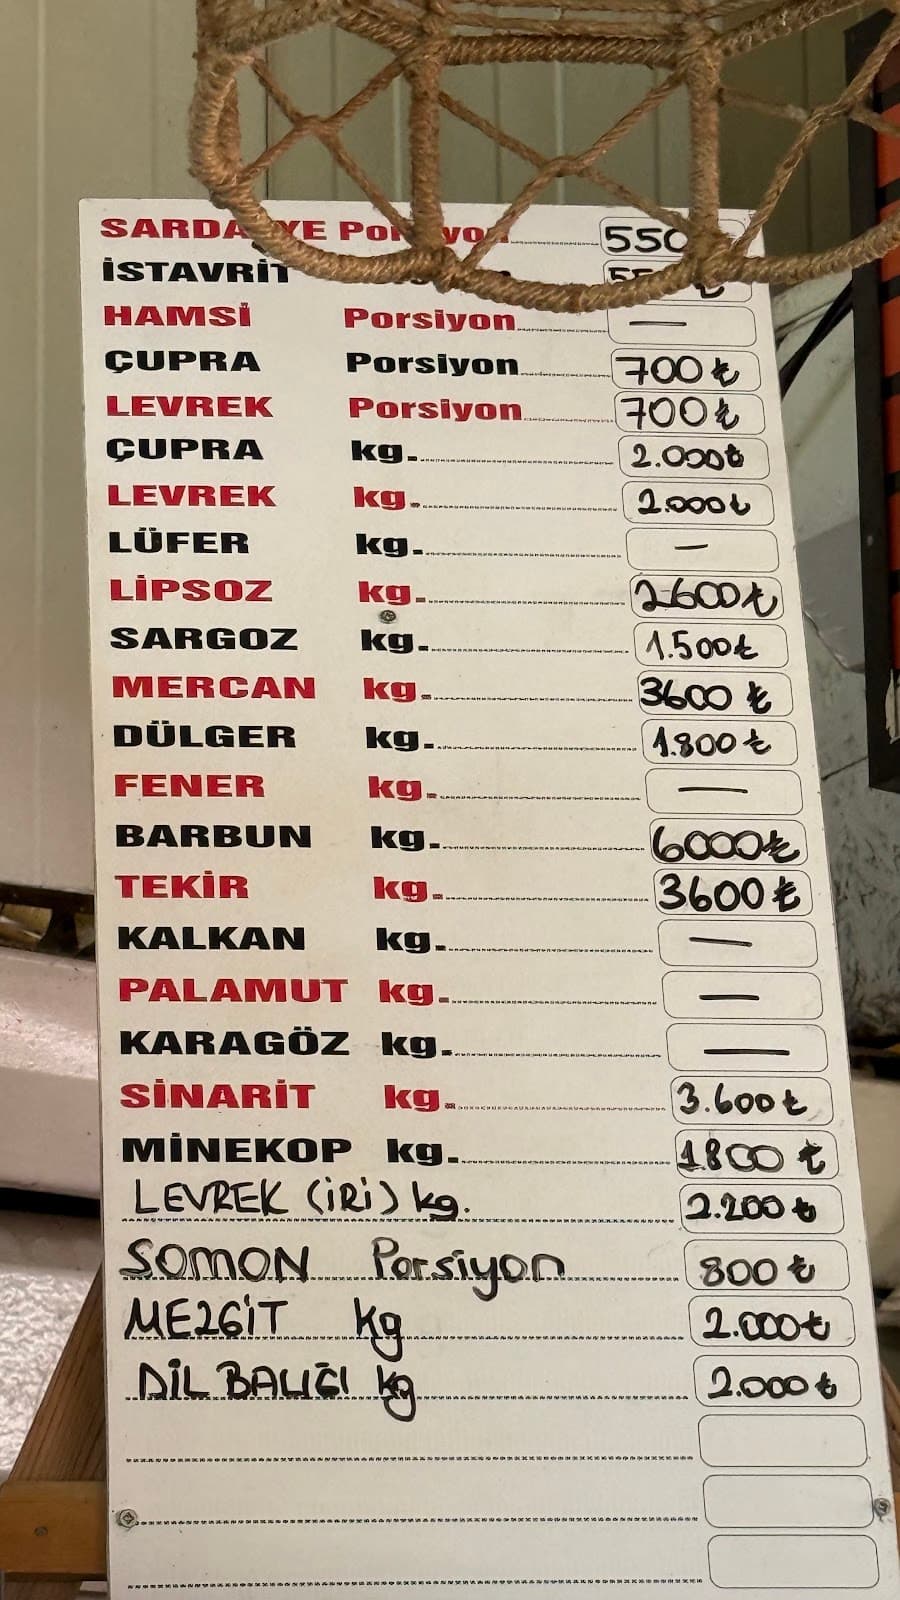 SARDALYE Porsiyon 550
İSTAVRİT
HAMSİ Porsiyon —
ÇUPRA Porsiyon 700 ₺
LEVREK Porsiyon 700 ₺
ÇUPRA kg. 2.000₺
LEVREK kg. 2.000₺
LÜFER kg. —
LİPSOZ kg. 2600₺
SARGOZ kg. 1.500₺
MERCAN kg. 3600 ₺
DÜLGER kg. 1.800₺
FENER kg. —
BARBUN kg. 6000₺
TEKİR kg. 3600 ₺
KALKAN kg. —
PALAMUT kg. —
KARAGÖZ kg. —
SİNARİT kg. 3.600₺
MİNEKOP kg. 1800 ₺
LEVREK (İRİ) kg. 2.200₺
SOMON Porsiyon 800 ₺
MEZGİT kg 2.000₺
DİL BALIĞI kg 2.000₺